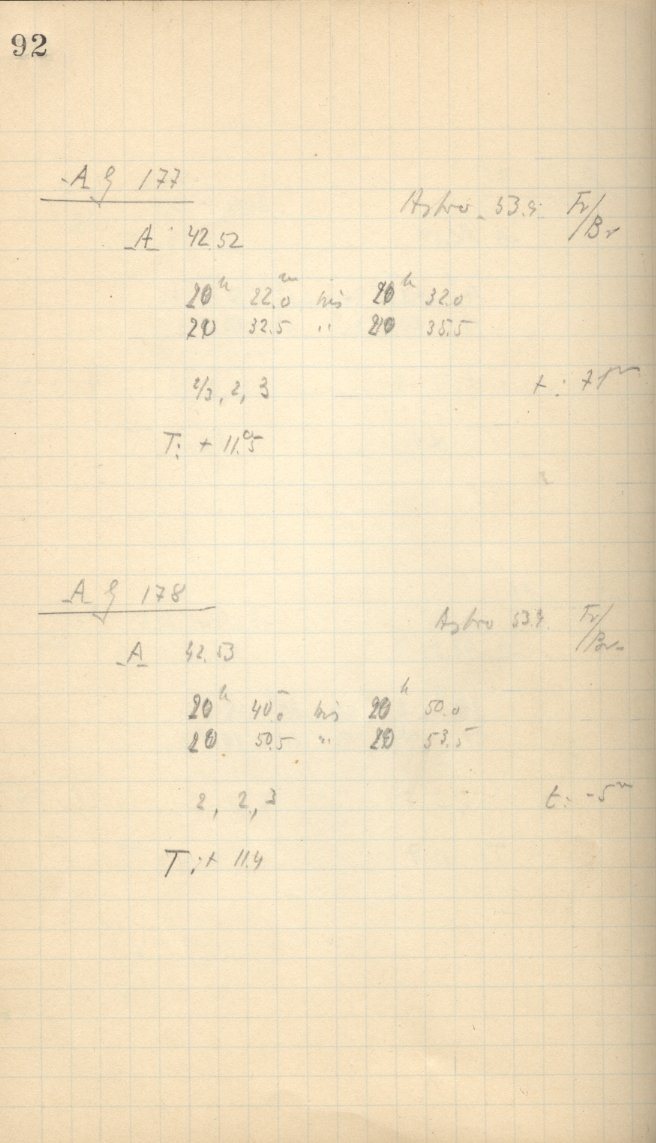 92
A G 177
Astro 53.9 Fr/Br
A 42 52
20h 22.0m bis 20h 32.0
20 32.5 " 20 35.5
2/3, 2, 3
T: + 11.°5
A G 178
Astro 53.9 Fr/Br
A 42 53
20h 40.0m bis 20h 50.0
20 50.5 " 20 53.5
2, 2, 3
t: -5m
T: + 11.4